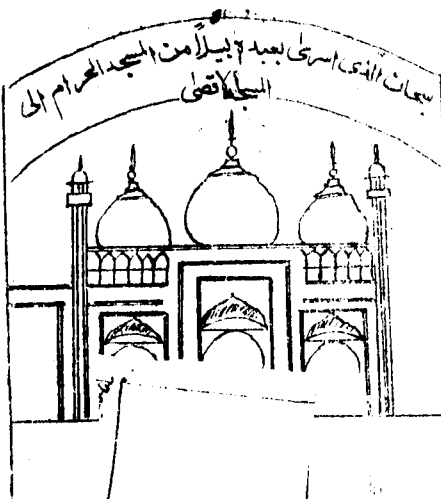 سبحان الذی اسریٰ بعبدہ لیلاً من المسجد الحرام الی
المسجد الاقصٰی